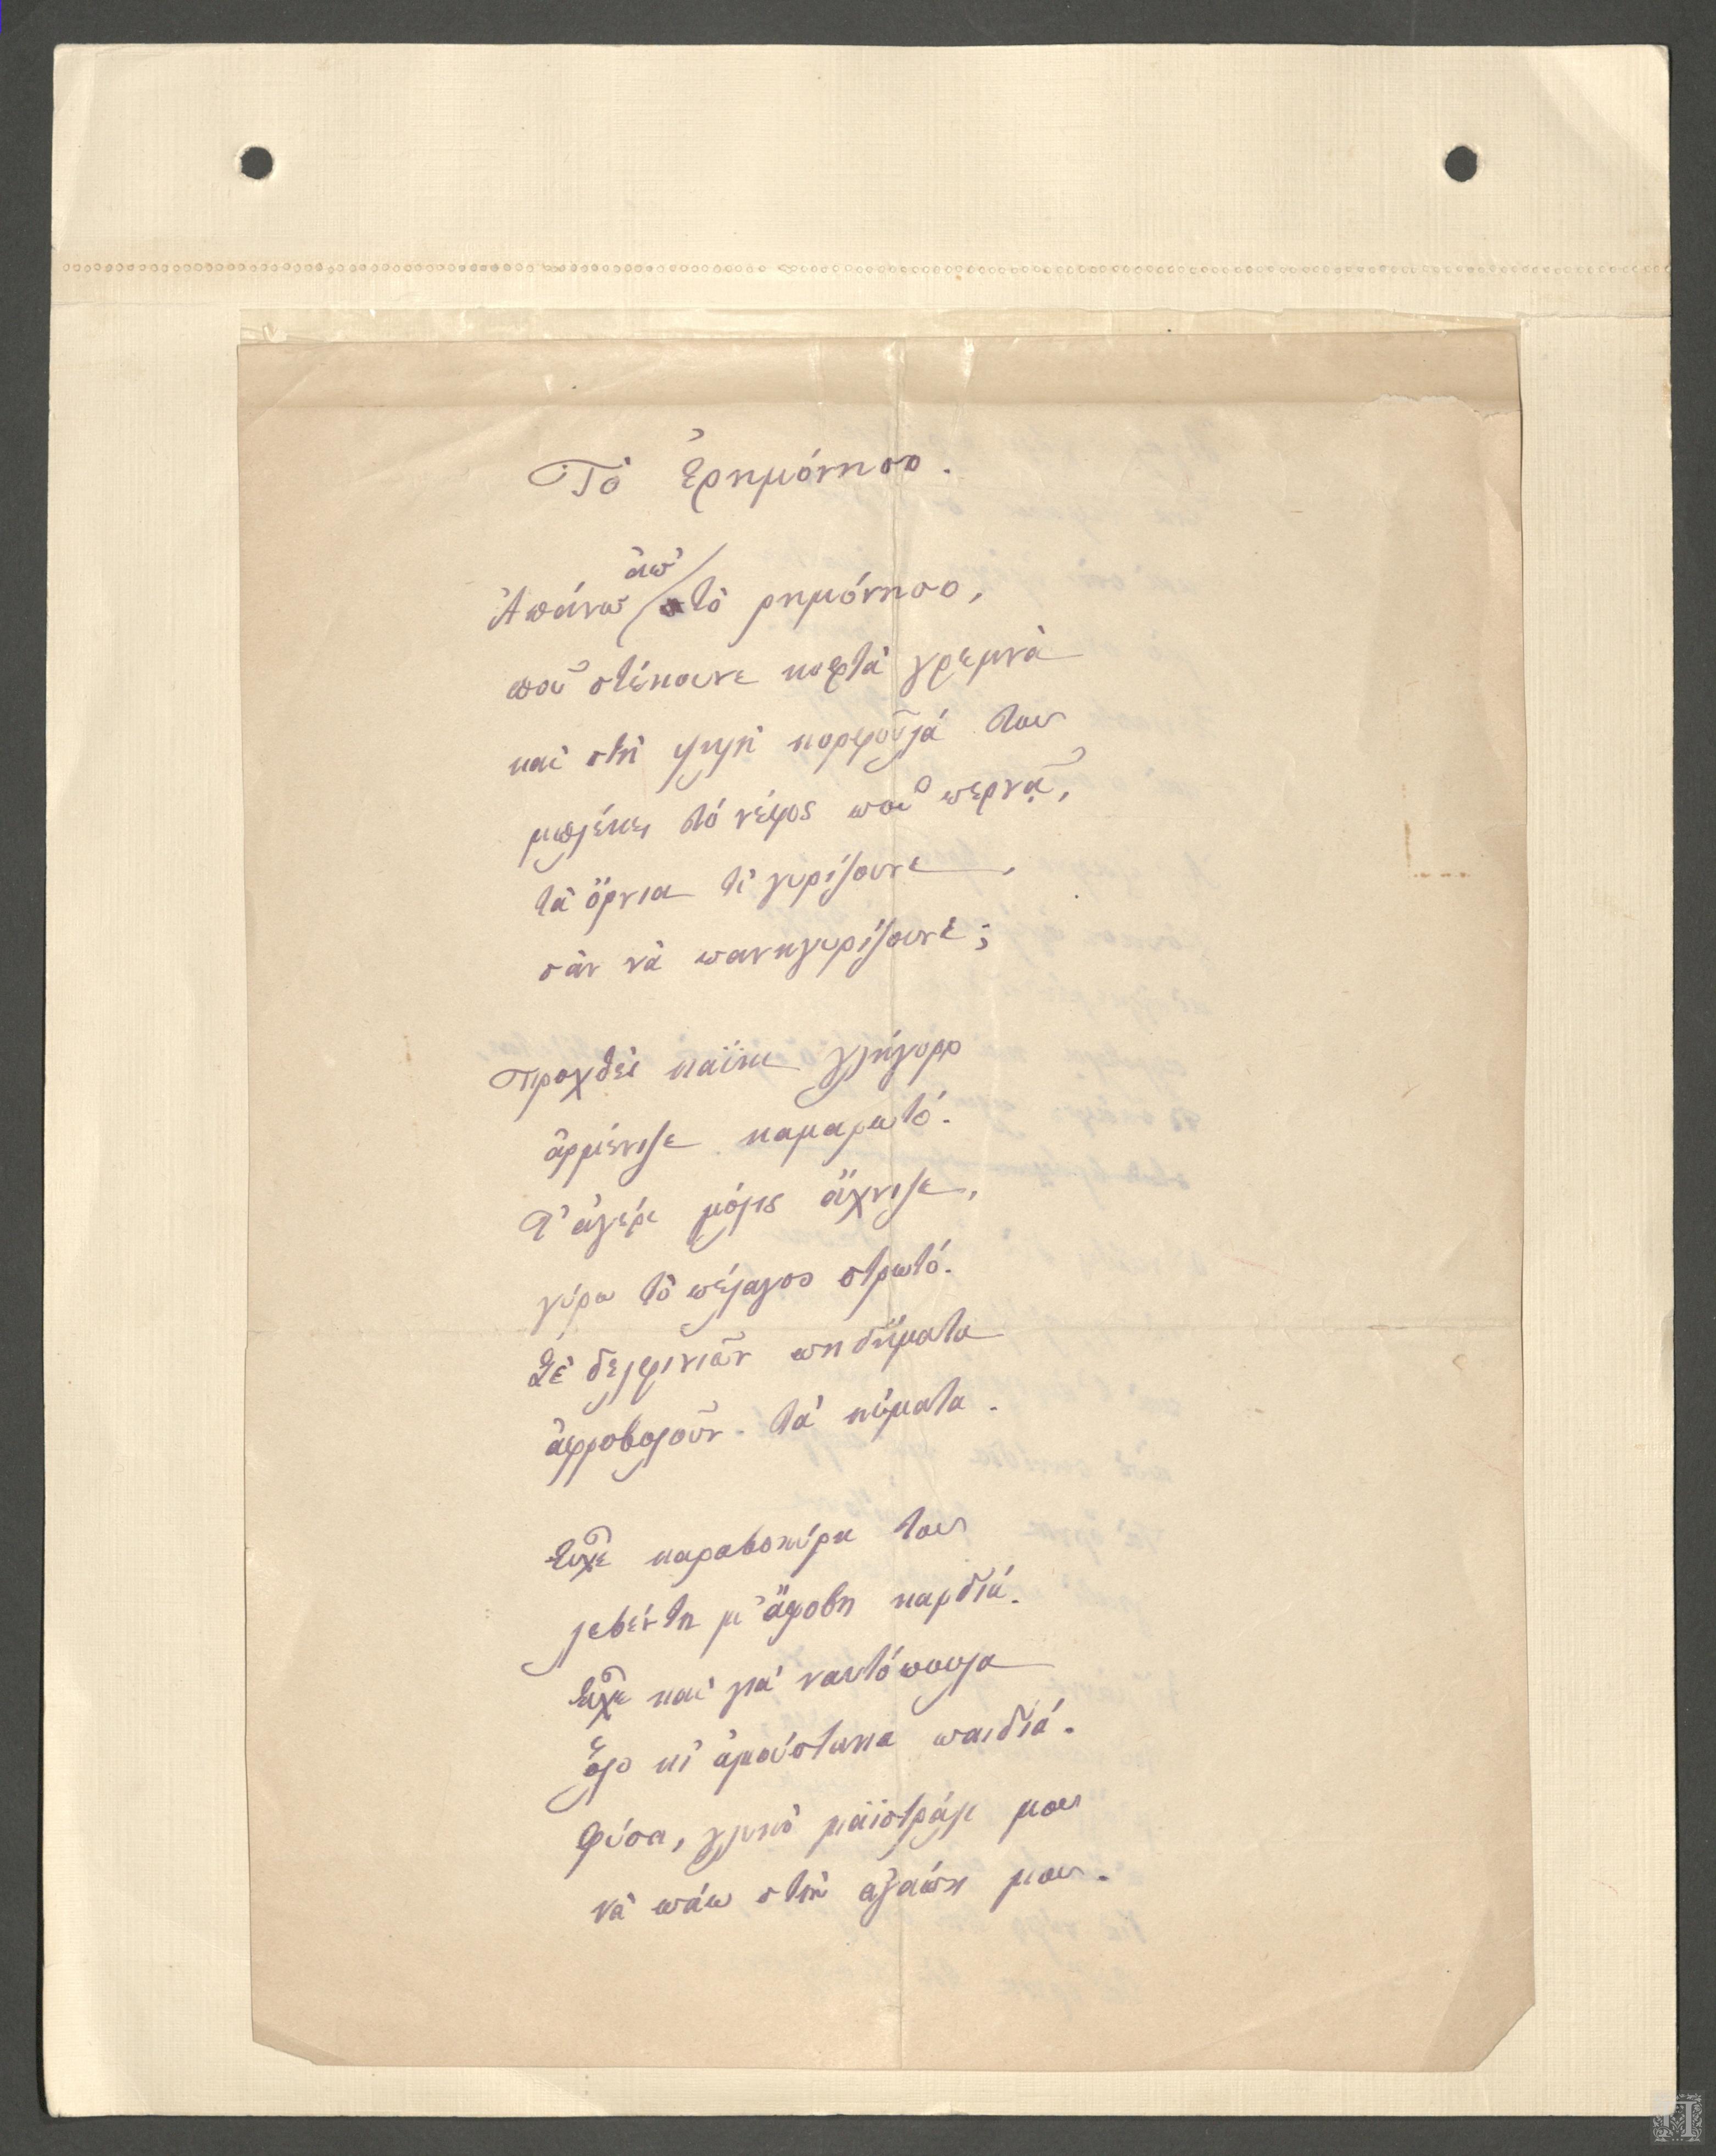 Τὸ ἐρημόνησο.
Ἀπάνω ἀπ' τὸ ρημόνησο,
ποῦ στέκουνε κοφτὰ γρεμνὰ
καὶ στὴ ψηλὴ κορφοῦλά του
μπλέκει τὸ νέφος ποῦ περνᾷ,
τὰ ὄρνια τὶ γυρίζουνε,
σὰν νὰ πανηγυρίζουνε;
Προχθὲς καΐκι γλήγορο
ἀρμένιζε καμαρωτό.
Τ' ἀγέρι μόλις ἄχνιζε,
γύρω τὸ πέλαγος στρωτό.
Σὲ δελφινιῶν πηδήματα
ἀφροβολοῦν τὰ κύματα.
Εἶχε καραβοκύρη του
λεβέντη μ' ἄφοβη καρδιά.
Εἶχε καὶ γιὰ ναυτόπουλα
ὅλο κι' ἀμούστακα παιδιά.
Φύσα, γλυκὸ μαϊστράλι μου
νὰ πάω στὴν ἀγάπη μου.